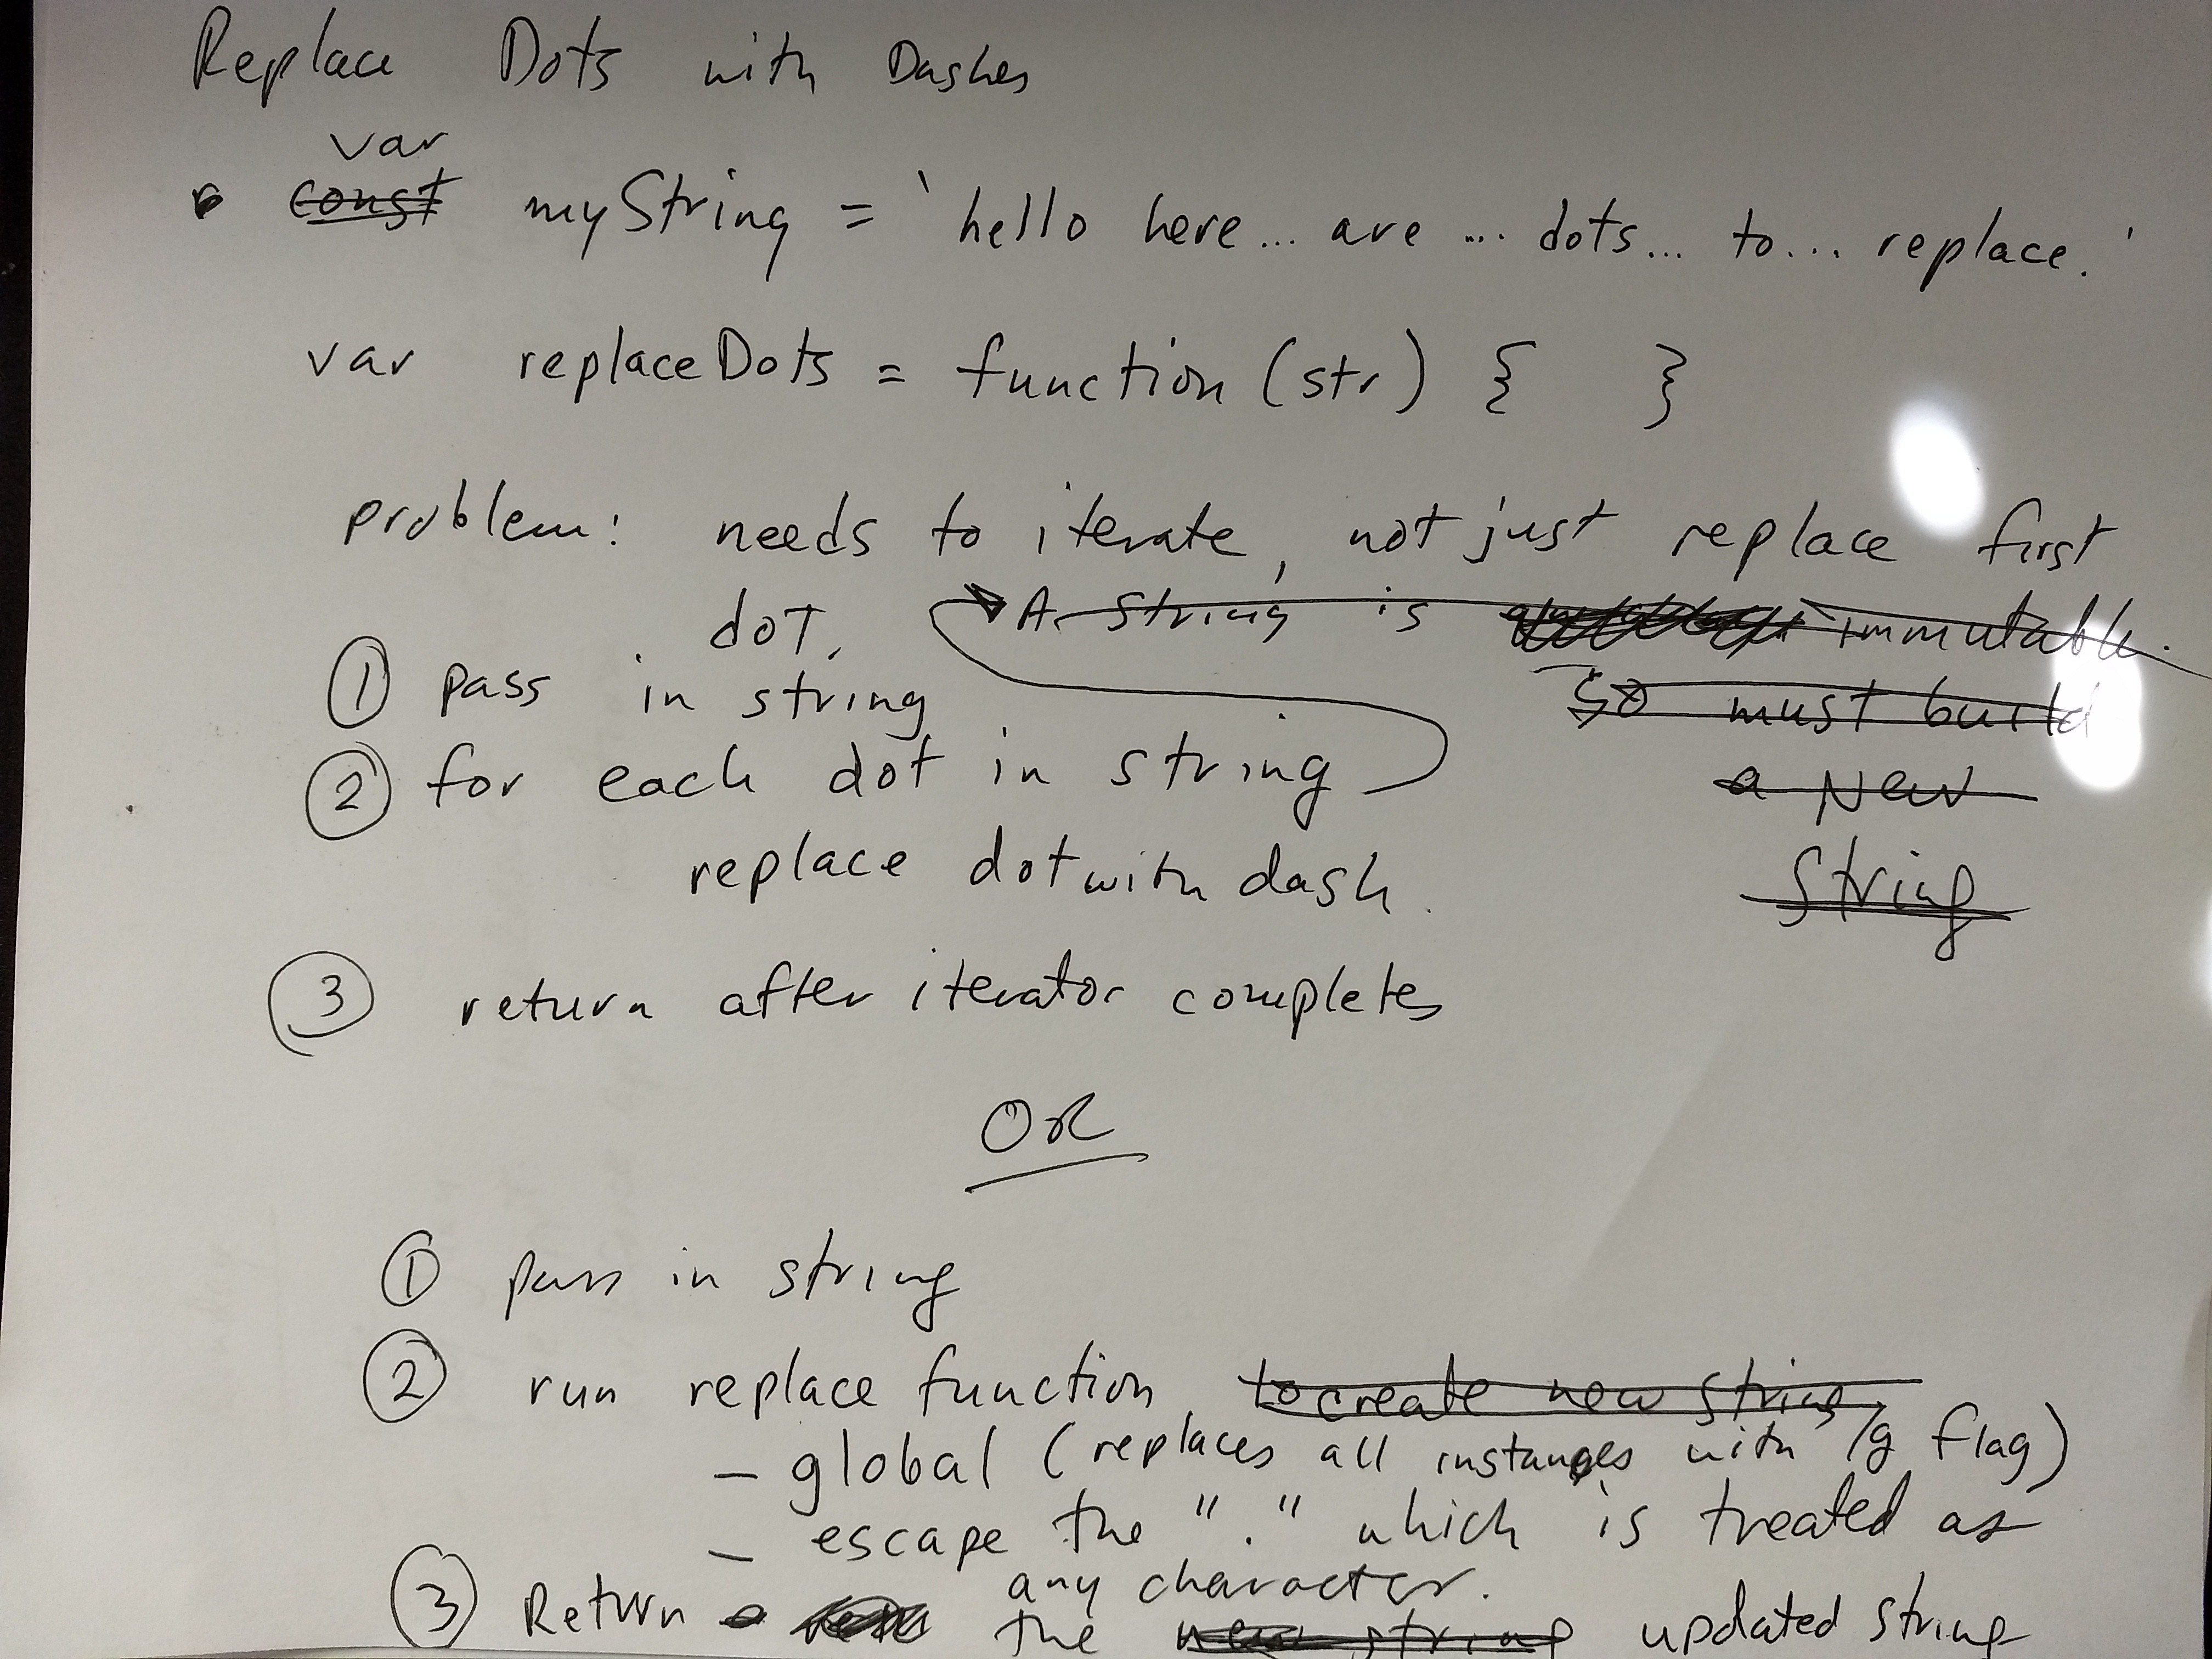 Replace Dots with Dashes
var
const myString = 'hello here... are ... dots... to... replace.'
var replaceDots = function (str) { }
problem: needs to iterate, not just replace first
dot. A string is immutable.
so must build
a New
string
① pass in string
② for each dot in string
replace dot with dash.
③ return after iterator completes
OR
① pass in string
② run replace function to create new string
– global (replaces all instances with /g flag)
– escape the "." which is treated as
any character.
③ Return the new string updated string